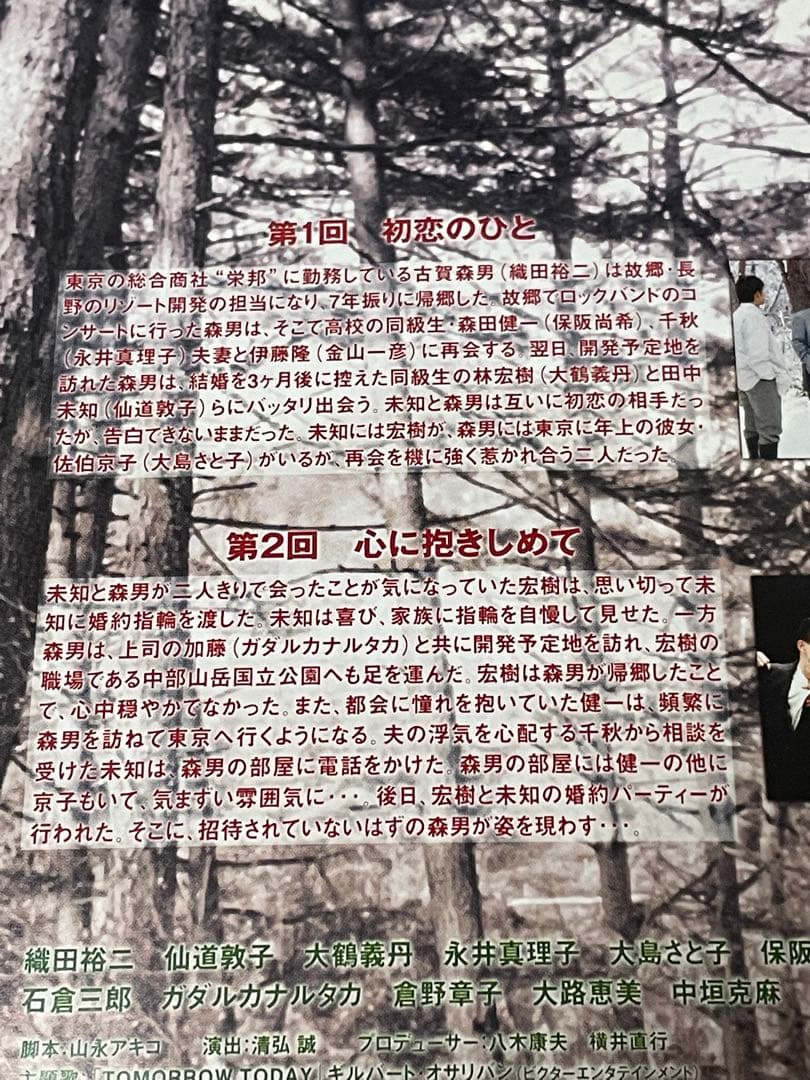 第1回　初恋のひと
東京の総合商社“栄邦”に勤務している古賀森男(織田裕二)は故郷・長
野のリゾート開発の担当になり、7年振りに帰郷した。故郷でロックバンドのコ
ンサートに行った森男は、そこで高校の同級生・森田健一(保阪尚希)、千秋
(永井真理子)夫妻と伊藤隆(金山一彦)に再会する。翌日、開発予定地を
訪れた森男は、結婚を3ヶ月後に控えた同級生の林宏樹(大鶴義丹)と田中
未知(仙道敦子)らにバッタリ出会う。未知と森男は互いに初恋の相手だっ
たが、告白できないままだった。未知には宏樹が、森男には東京に年上の彼女・
佐伯京子(大島さと子)がいるが、再会を機に強く惹かれ合う二人だった。
第2回　心に抱きしめて
未知と森男が二人きりで会ったことが気になっていた宏樹は、思い切って未
知に婚約指輪を渡した。未知は喜び、家族に指輪を自慢して見せた。一方
森男は、上司の加藤(ガダルカナルタカ)と共に開発予定地を訪れ、宏樹の
職場である中部山岳国立公園へも足を運んだ。宏樹は森男が帰郷したこと
で、心中穏やかでなかった。また、都会に憧れを抱いていた健一は、頻繁に
森男を訪ねて東京へ行くようになる。夫の浮気を心配する千秋から相談を
受けた未知は、森男の部屋に電話をかけた。森男の部屋には健一の他に
京子もいて、気まずい雰囲気に・・・。後日、宏樹と未知の婚約パーティーが
行われた。そこに、招待されていないはずの森男が姿を現わす・・・。
織田裕二　仙道敦子　大鶴義丹　永井真理子　大島さと子　保阪
石倉三郎　ガダルカナルタカ　倉野章子　大路恵美　中垣克麻
脚本:山永アキコ　演出:清弘 誠　プロデューサー:八木康夫　横井直行
主題歌:「TOMORROW TODAY」ギルバート・オサリバン(ビクターエンタテインメント)